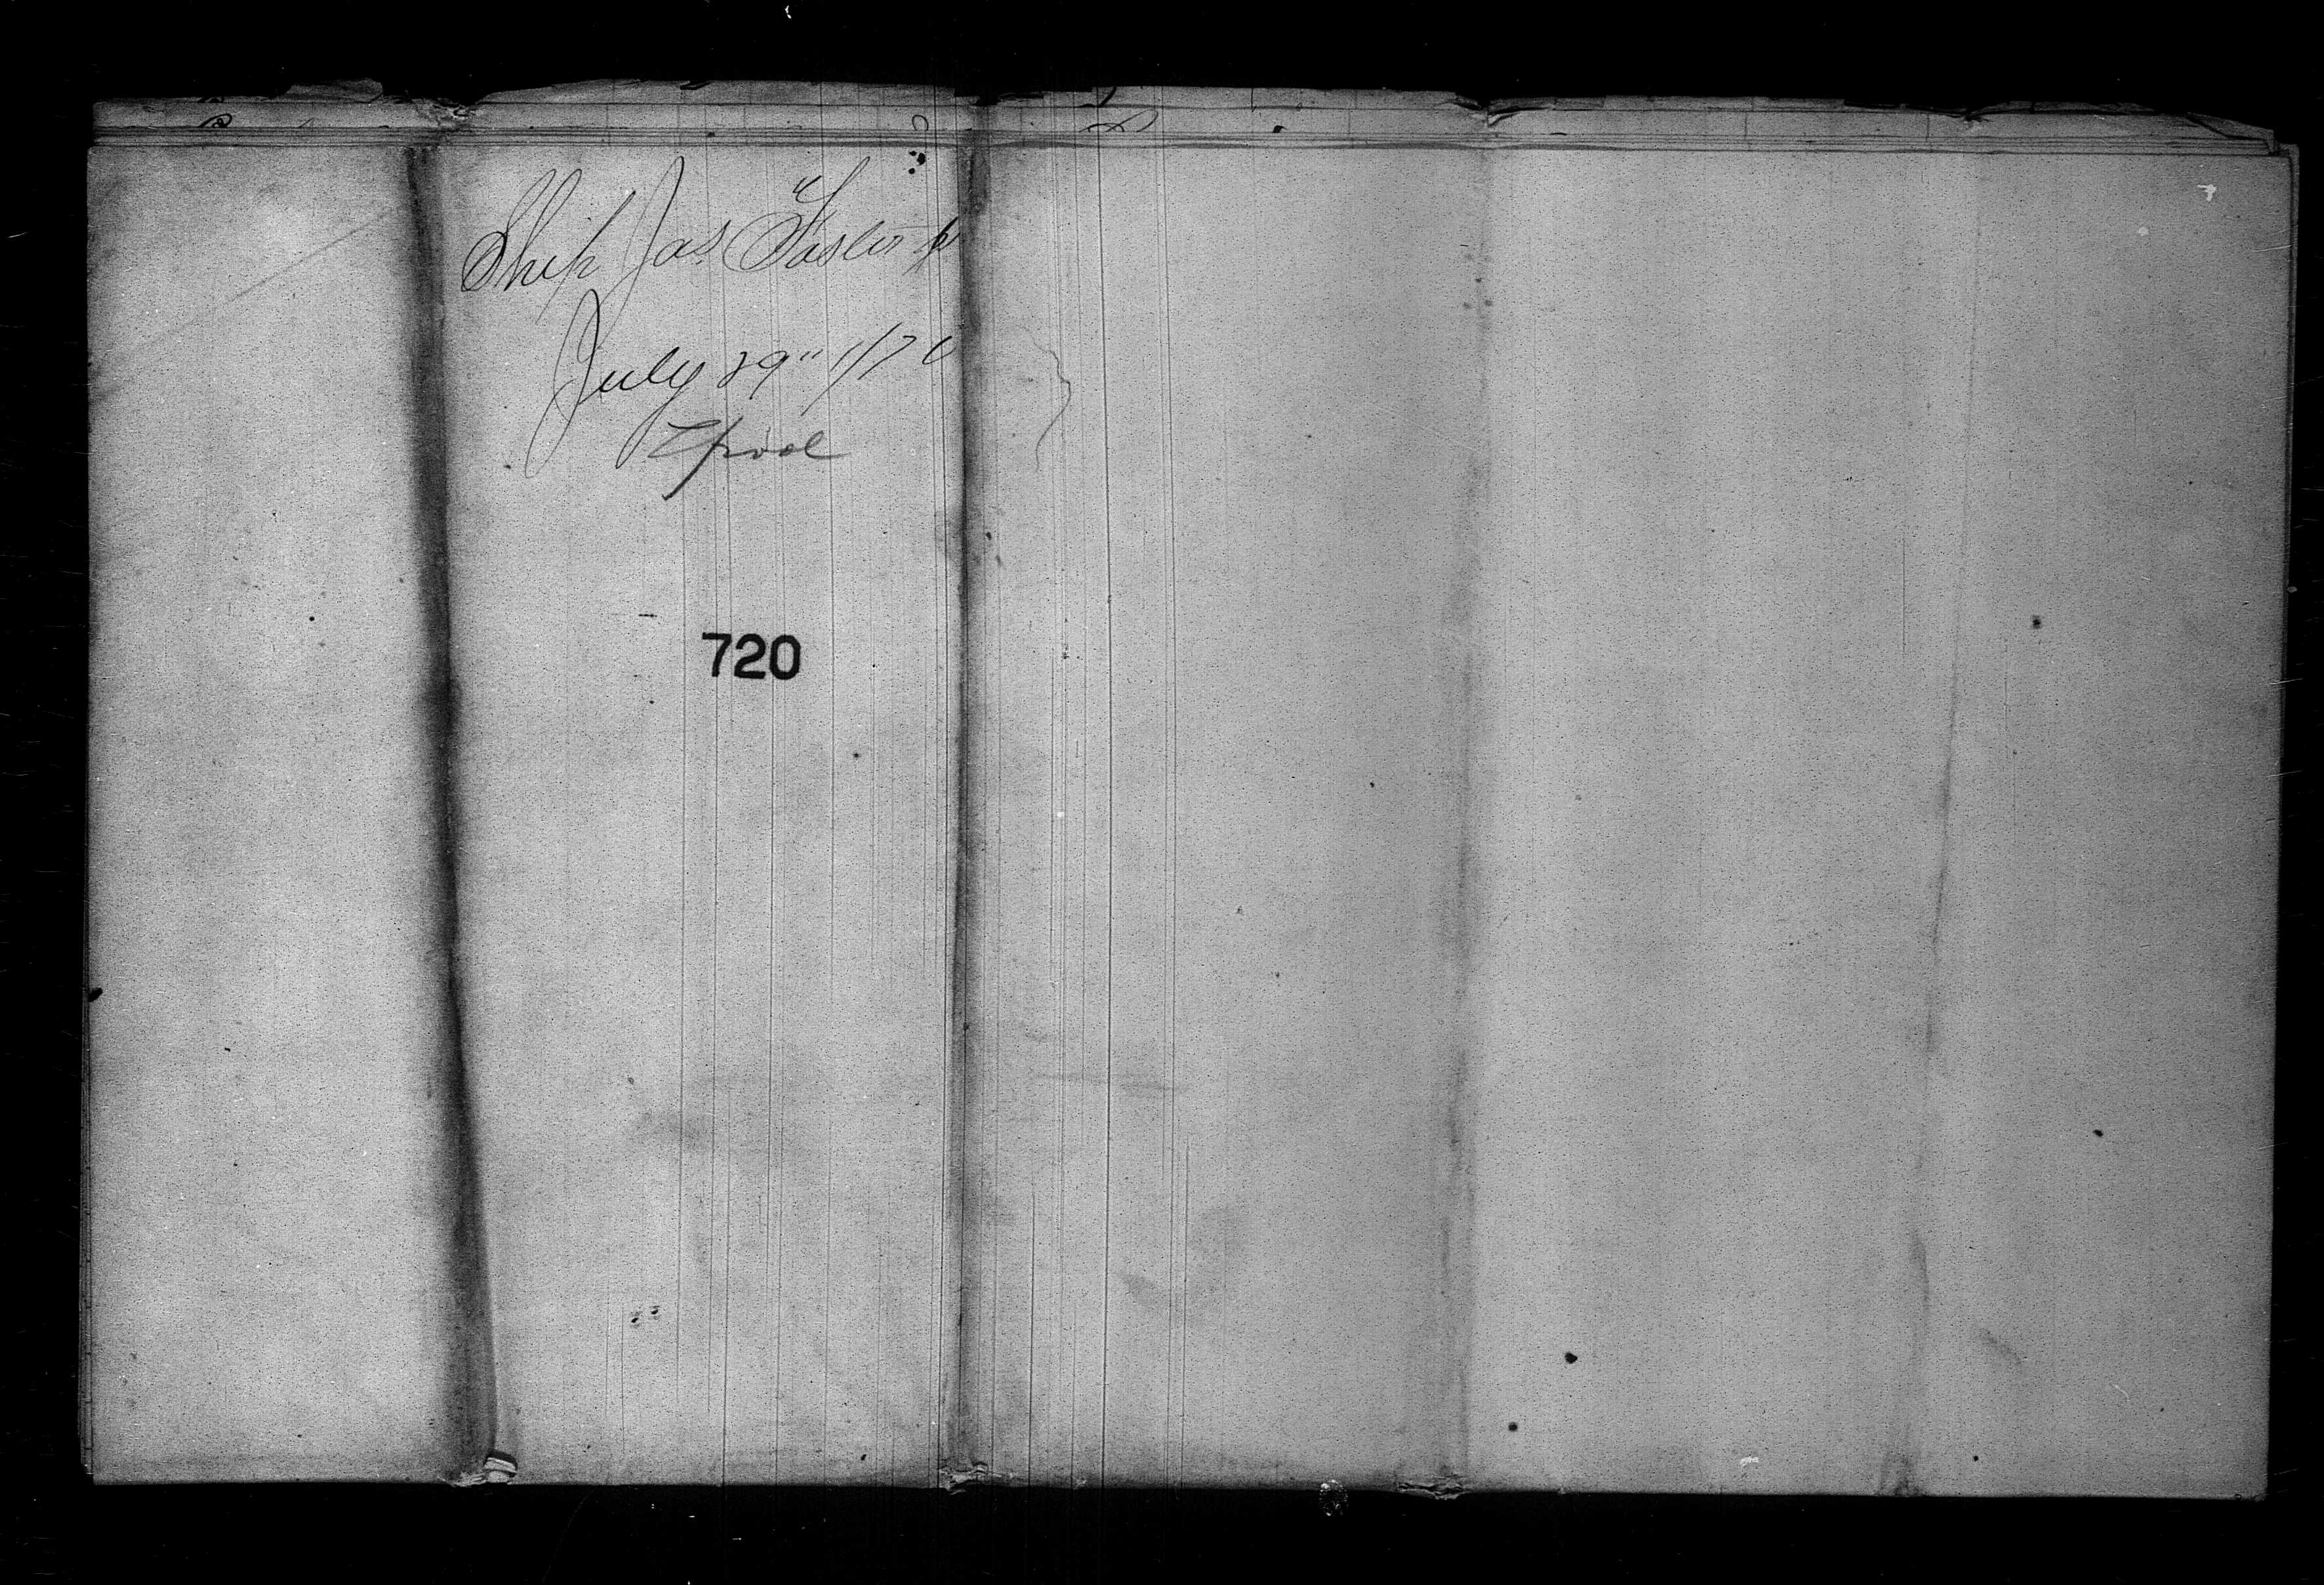 Ship Jas. Foster Jr
July 29" 1870
Lpool
720